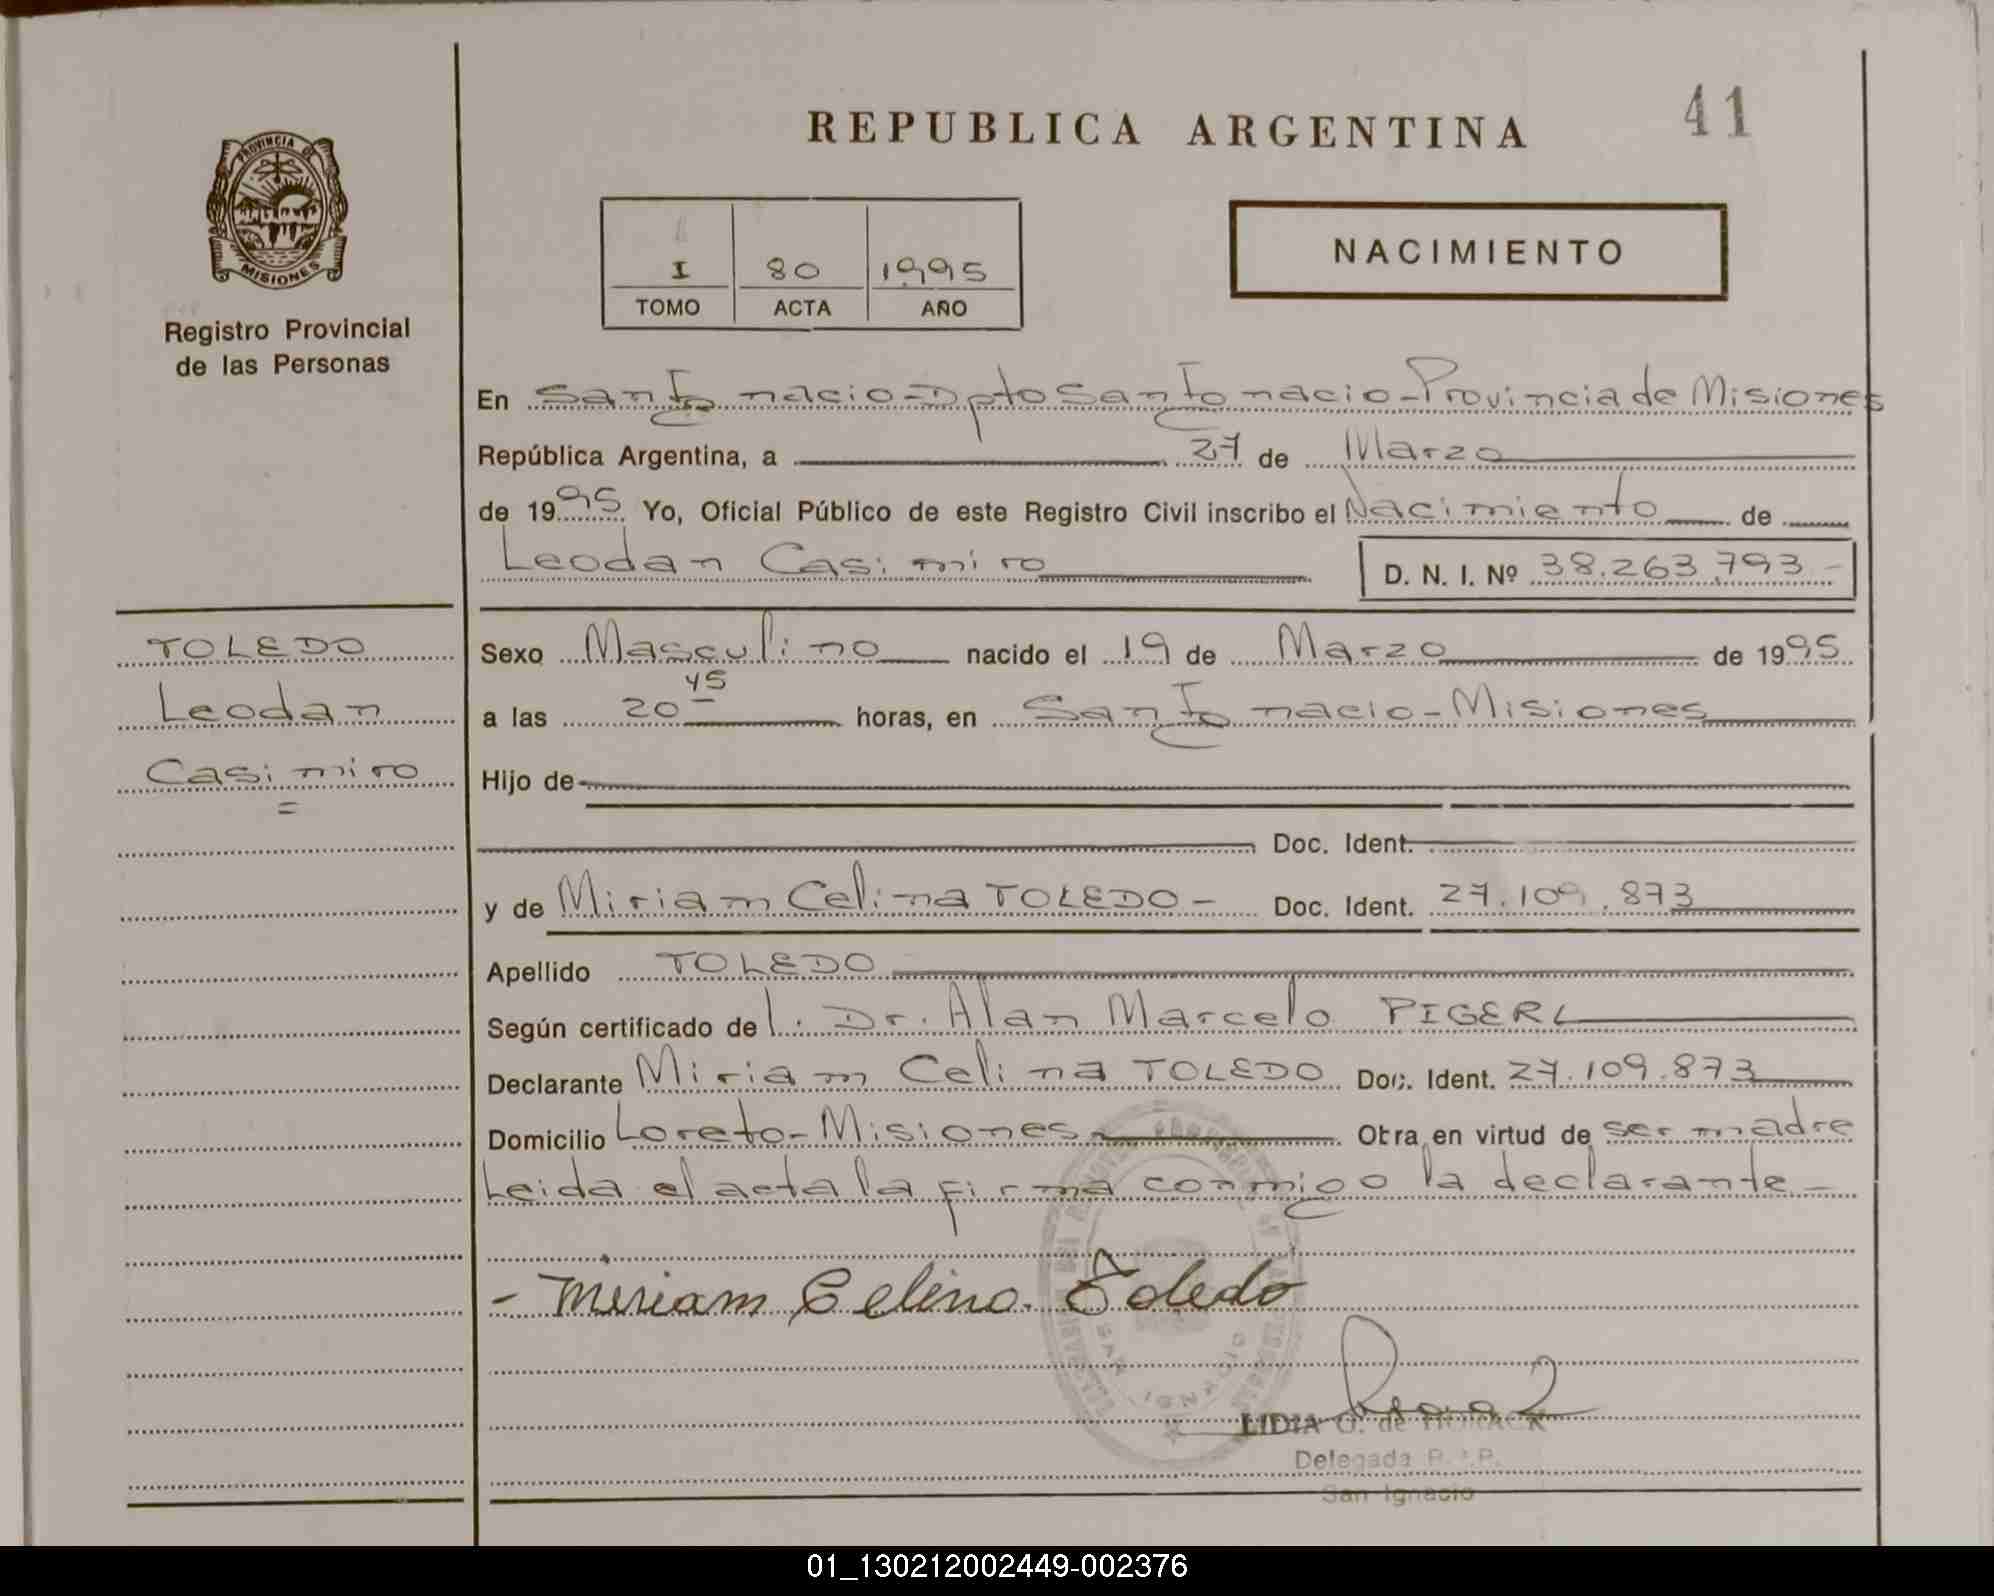 REPUBLICA ARGENTINA
41
PROVINCIA DE
MISIONES
Registro Provincial
de las Personas
I 80 1995
TOMO ACTA AÑO
NACIMIENTO
En San Ignacio - Dpto San Ignacio - Provincia de Misiones
República Argentina, a 27 de Marzo
de 1995 Yo, Oficial Público de este Registro Civil inscribo el Nacimiento de
Leodan Casimiro D. N. I. Nº 38.263.793 -
TOLEDO
Leodan
Casimiro
Sexo Masculino nacido el 19 de Marzo de 1995
a las 20 45 horas, en San Ignacio - Misiones
Hijo de
Doc. Ident.
y de Miriam Celina TOLEDO - Doc. Ident. 27.109.873
Apellido TOLEDO
Según certificado de l. Dr. Alan Marcelo PIGERL
Declarante Miriam Celina TOLEDO Doc. Ident. 27.109.873
Domicilio Loreto - Misiones Obra en virtud de ser madre
Leida el acta la firma conmigo la declarante -
- Miriam Celina Toledo
SAN IGNACIO
LIDIA O. de
Delegada R.P.P.
San Ignacio
01_130212002449-002376